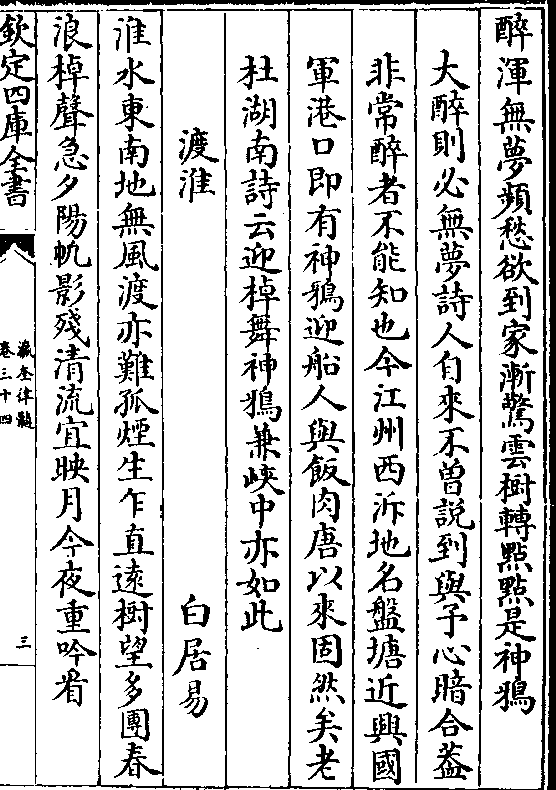 醉渾無夢頻愁欲到家漸驚雲樹轉點點是神鴉
大醉則必無夢詩人自來不曾説到與予心暗合葢
非常醉者不能知也今江州西泝地名盤塘近興國
軍港口即有神鴉迎船人與飯肉唐以來固然矣老
杜湖南詩云迎棹舞神鴉兼峽中亦如此
渡淮
白居易
淮水東南地無風渡亦難孤煙生乍直逺樹望多團春
浪棹聲急夕陽㠶影殘清流宜映月今夜重吟㸔
欽定四庫全書
瀛奎律髓
卷三十四
三